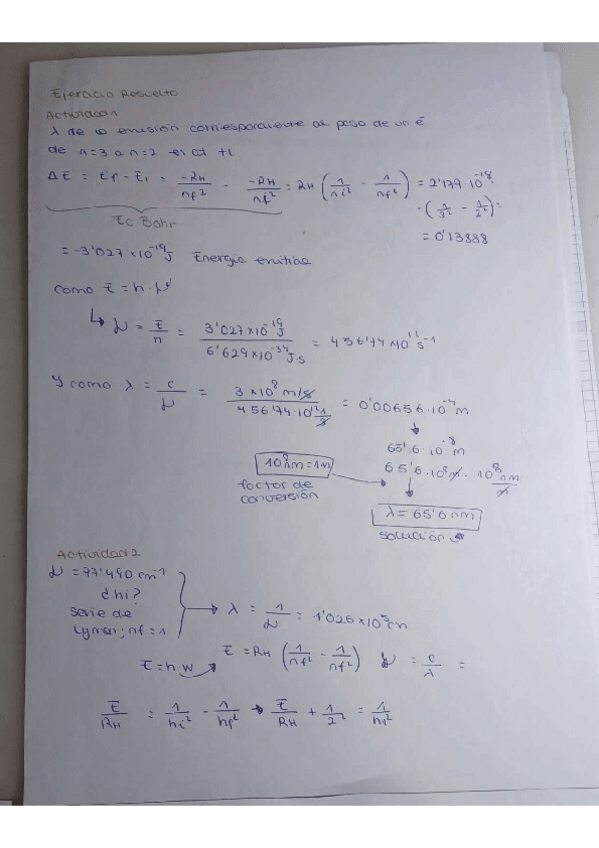 Ejercicio Resuelto
Actividad 1
λ de la emisión correspondiente al paso de un e⁻
de n=3 a n=2 en el H
ΔE = Ef - Ei = -RH/nf² - -RH/nf² = RH (1/ni² - 1/nf²) = 2'179·10⁻¹⁸·
·(1/3² - 1/2²) =
= 0'13888
Ec Bohr
= -3'027 × 10⁻¹⁹ J Energía emitida
como E = h·ν
↳ ν = E/h = 3'027×10⁻¹⁹ J / 6'629×10⁻³⁴ J·s = 456'74×10¹² s⁻¹
y como λ = c/ν = 3×10⁸ m/s / 456'74·10¹² 1/s = 0'00656·10⁻⁴ m
65'6·10⁻⁸ m
10⁹ nm = 1m
65'6·10⁻⁸ m · 10⁹ nm/m
factor de
conversión
λ = 65'6 nm
solución
Actividad 2
ν = 97'490 cm⁻¹
¿ni?
serie de
Lyman; nf = 1
→ λ = 1/ν = 1'026×10⁻⁵ cm
E = h·ν
E = RH (1/nf² - 1/nf²) ν = c/λ =
E/RH = 1/ni² - 1/nf² → E/RH + 1/2² = 1/ni²